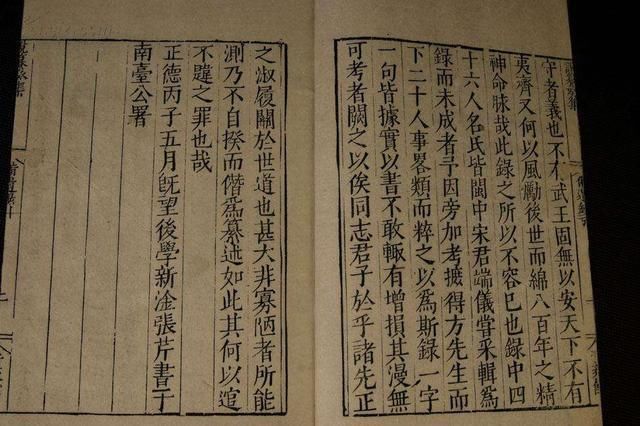 守者義也不有武王固無以安天下不有
夷齊又何以風勵後世而綿八百年之精
神命脉哉此錄之所以不容已也錄中四
十六人名氏皆閩中宋君端儀嘗采輯爲
錄而未成者予因旁加考摭得方先生而
下二十人事畧類而粹之以爲斯錄一字
一句皆據實以書不敢輙有增損其漫無
可考者闕之以俟同志君子於乎諸先正
之淑履關於世道也甚大非寡陋者所能
測乃不自揆而僭爲纂述如此其何以逭
不韙之罪也哉
正德丙子五月旣望後學新淦張芹書于
南臺公署